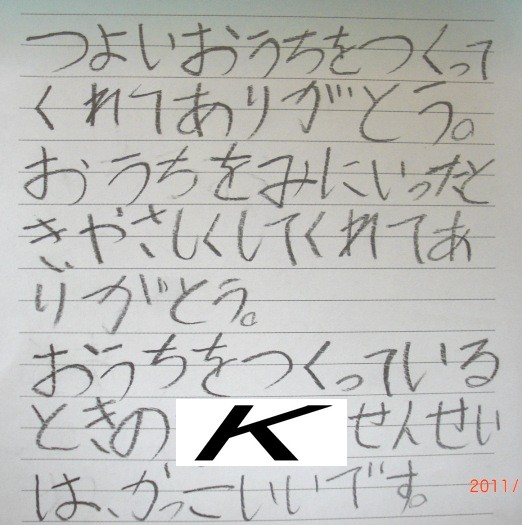 つよいおうちをつくって
くれてありがとう。
おうちをみにいったと
きやさしくしてくれてあ
りがとう。
おうちをつくっている
ときの K せんせい
は、かっこいいです。
2011/